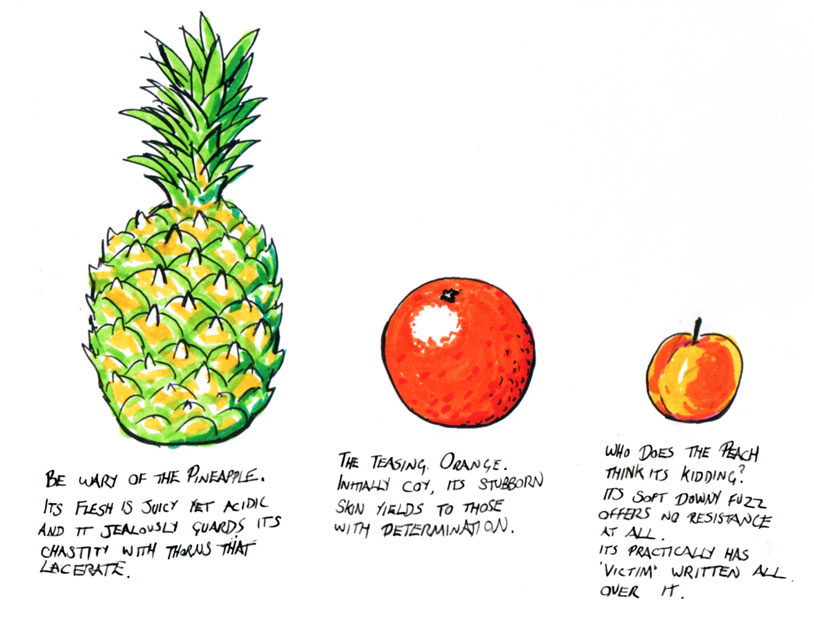 BE WARY OF THE PINEAPPLE.
ITS FLESH IS JUICY YET ACIDIC
AND IT JEALOUSLY GUARDS ITS
CHASTITY WITH THORNS THAT
LACERATE.
THE TEASING ORANGE.
INITIALLY COY, ITS STUBBORN
SKIN YIELDS TO THOSE
WITH DETERMINATION.
WHO DOES THE PEACH
THINK ITS KIDDING?
ITS SOFT DOWNY FUZZ
OFFERS NO RESISTANCE
AT ALL.
ITS PRACTICALLY HAS
'VICTIM' WRITTEN ALL
OVER IT.